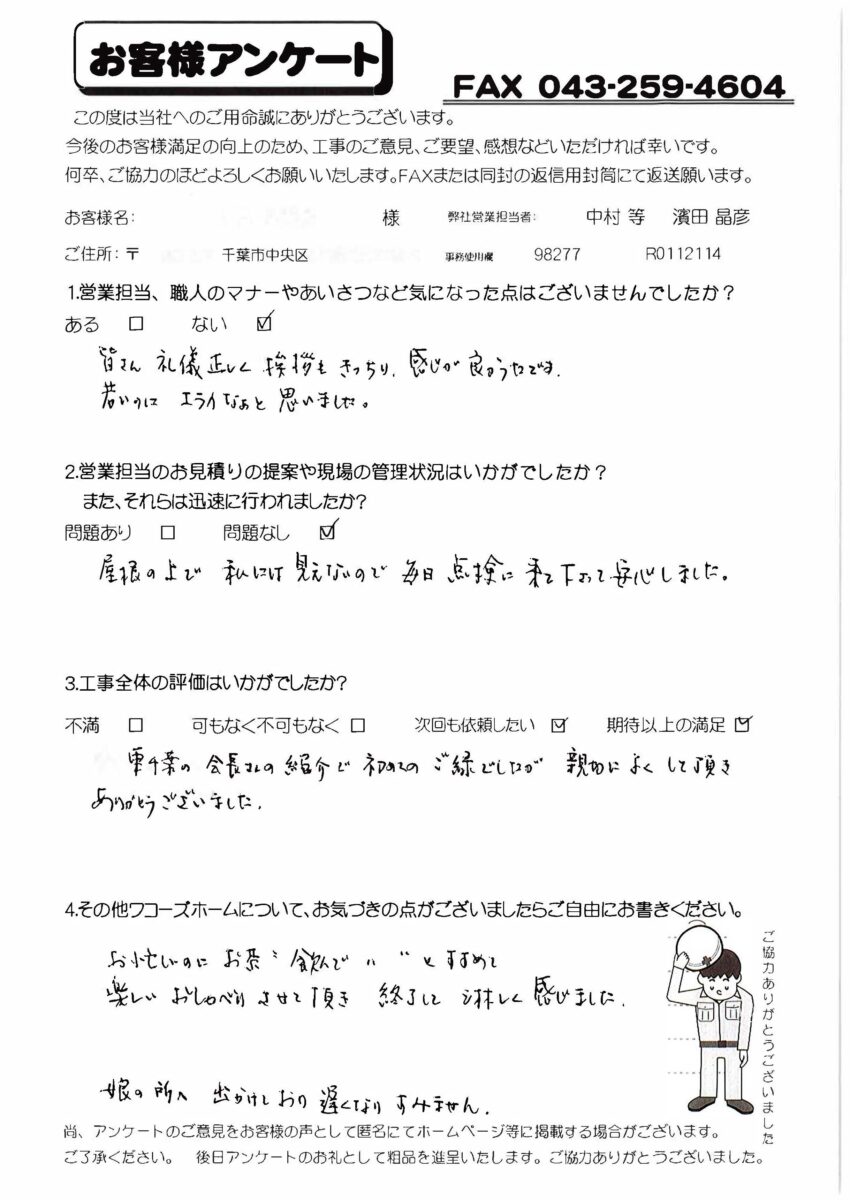 お客様アンケート
FAX 043-259-4604
この度は当社へのご用命誠にありがとうございます。
今後のお客様満足の向上のため、工事のご意見、ご要望、感想などいただければ幸いです。
何卒、ご協力のほどよろしくお願いいたします。FAXまたは同封の返信用封筒にて返送願います。
お客様名: 様 弊社営業担当者: 中村 等 濱田 晶彦
ご住所:〒 千葉市中央区 事務使用欄 98277 R0112114
1.営業担当、職人のマナーやあいさつなど気になった点はございませんでしたか?
ある □ ない ☑
皆さん 礼儀正しく 挨拶も きっちり、感じが良かったです。
若いのに エライなぁと 思いました。
2.営業担当のお見積りの提案や現場の管理状況はいかがでしたか?
また、それらは迅速に行われましたか?
問題あり □ 問題なし ☑
屋根の上で 私には 見えないので 毎日 点検に 来て下さって 安心しました。
3.工事全体の評価はいかがでしたか?
不満 □ 可もなく不可もなく □ 次回も依頼したい ☑ 期待以上の満足 ☑
東千葉の 会長さんの紹介で 初めての ご縁でしたが 親切に よく して頂き
ありがとうございました。
4.その他ワコーズホームについて、お気づきの点がございましたらご自由にお書きください。
お忙しいのに お茶 飲んで と すすめて
楽しい おしゃべり させて頂き 終了して 淋しく 感じました。
娘の所へ 出かけており 遅くなり すみません。
ご協力ありがとうございました
尚、アンケートのご意見をお客様の声として匿名にてホームページ等に掲載する場合がございます。
ご了承ください。 後日アンケートのお礼として粗品を進呈いたします。ご協力ありがとうございました。